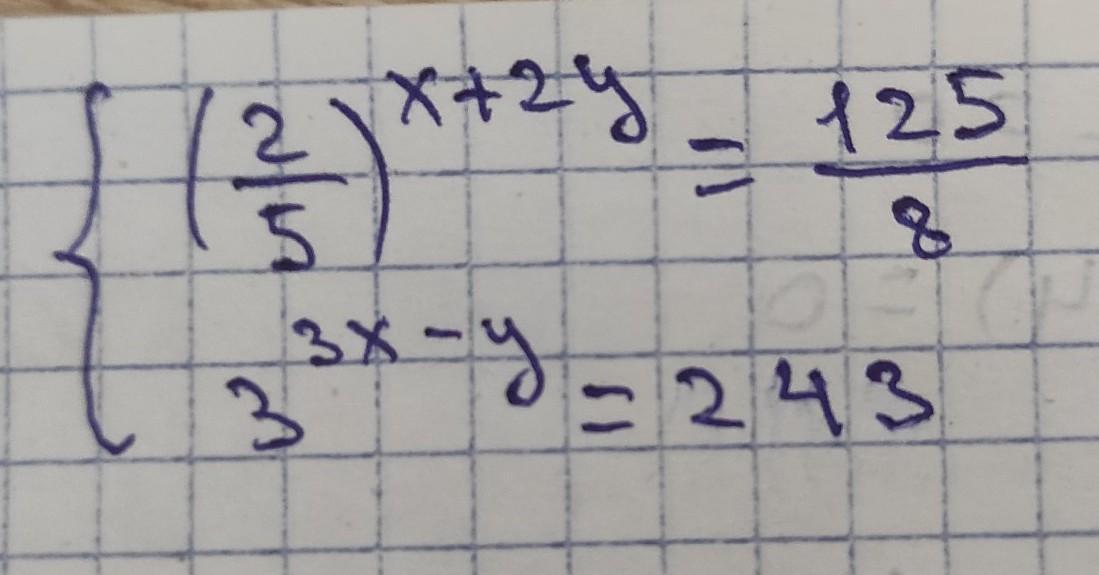 { (2/5)^(x+2y) = 125/8
3^(3x-y) = 243